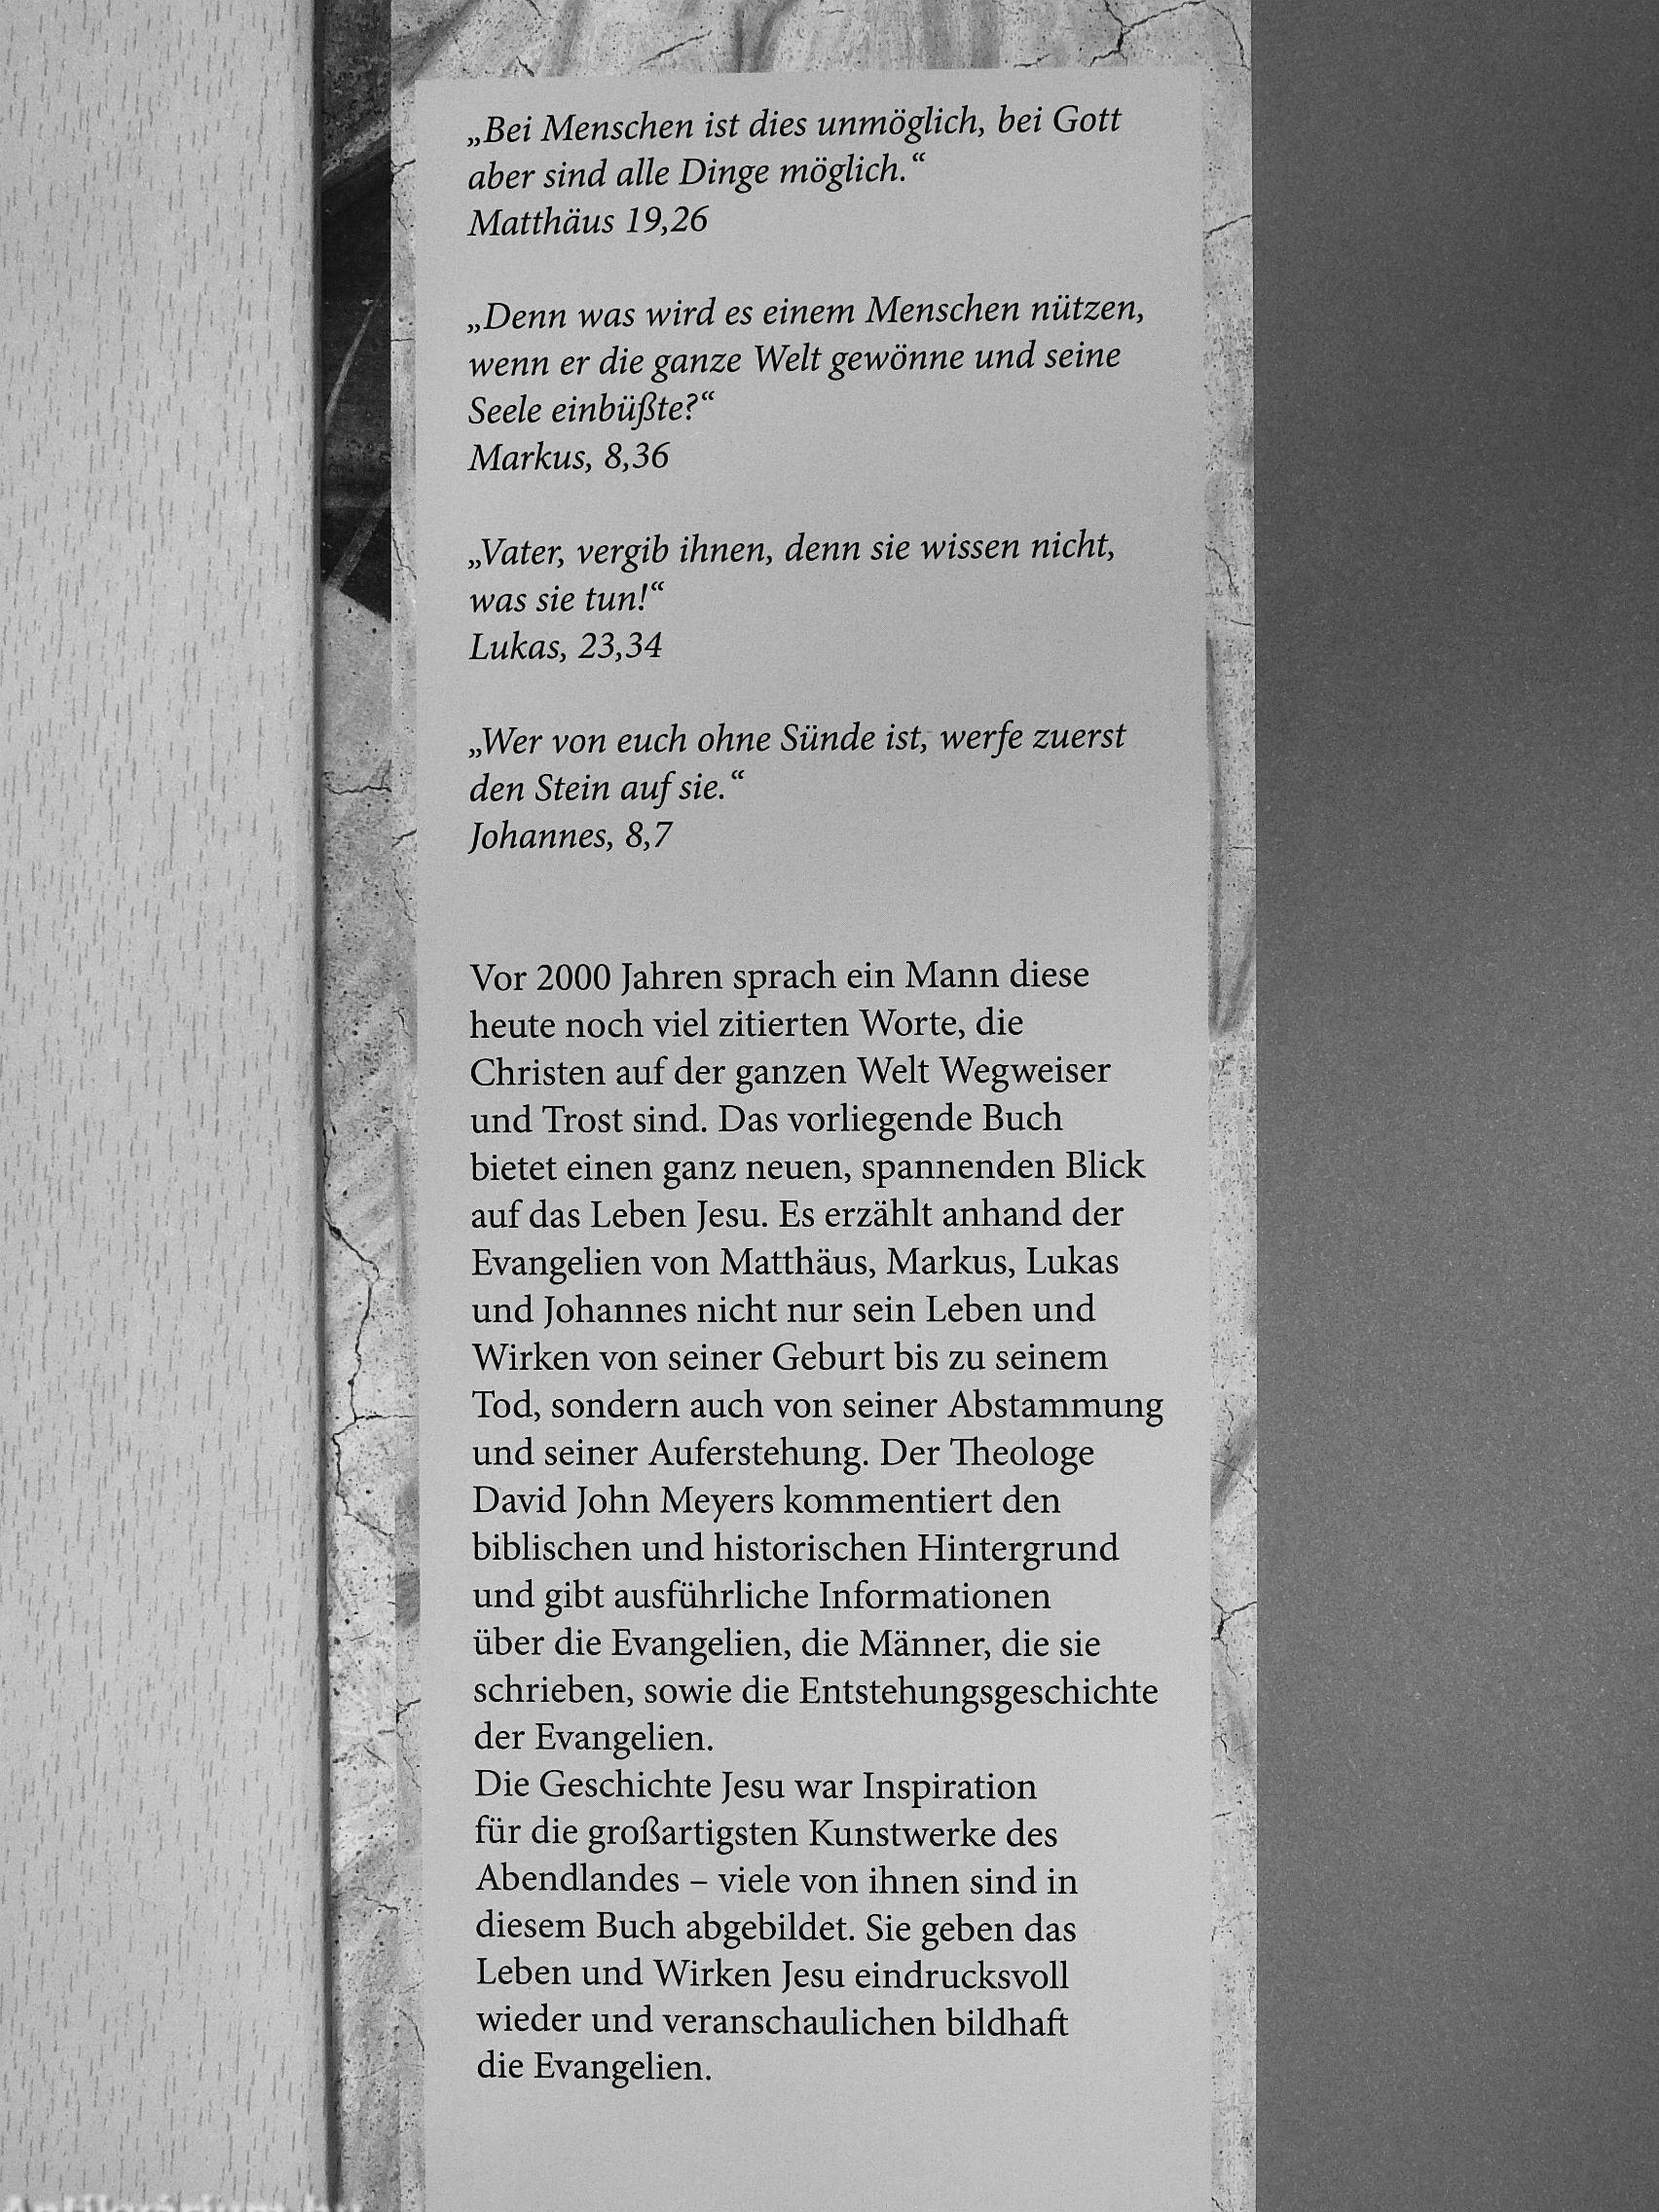 „Bei Menschen ist dies unmöglich, bei Gott
aber sind alle Dinge möglich.“
Matthäus 19,26
„Denn was wird es einem Menschen nützen,
wenn er die ganze Welt gewönne und seine
Seele einbüßte?“
Markus, 8,36
„Vater, vergib ihnen, denn sie wissen nicht,
was sie tun!“
Lukas, 23,34
„Wer von euch ohne Sünde ist, werfe zuerst
den Stein auf sie.“
Johannes, 8,7
Vor 2000 Jahren sprach ein Mann diese
heute noch viel zitierten Worte, die
Christen auf der ganzen Welt Wegweiser
und Trost sind. Das vorliegende Buch
bietet einen ganz neuen, spannenden Blick
auf das Leben Jesu. Es erzählt anhand der
Evangelien von Matthäus, Markus, Lukas
und Johannes nicht nur sein Leben und
Wirken von seiner Geburt bis zu seinem
Tod, sondern auch von seiner Abstammung
und seiner Auferstehung. Der Theologe
David John Meyers kommentiert den
biblischen und historischen Hintergrund
und gibt ausführliche Informationen
über die Evangelien, die Männer, die sie
schrieben, sowie die Entstehungsgeschichte
der Evangelien.
Die Geschichte Jesu war Inspiration
für die großartigsten Kunstwerke des
Abendlandes – viele von ihnen sind in
diesem Buch abgebildet. Sie geben das
Leben und Wirken Jesu eindrucksvoll
wieder und veranschaulichen bildhaft
die Evangelien.